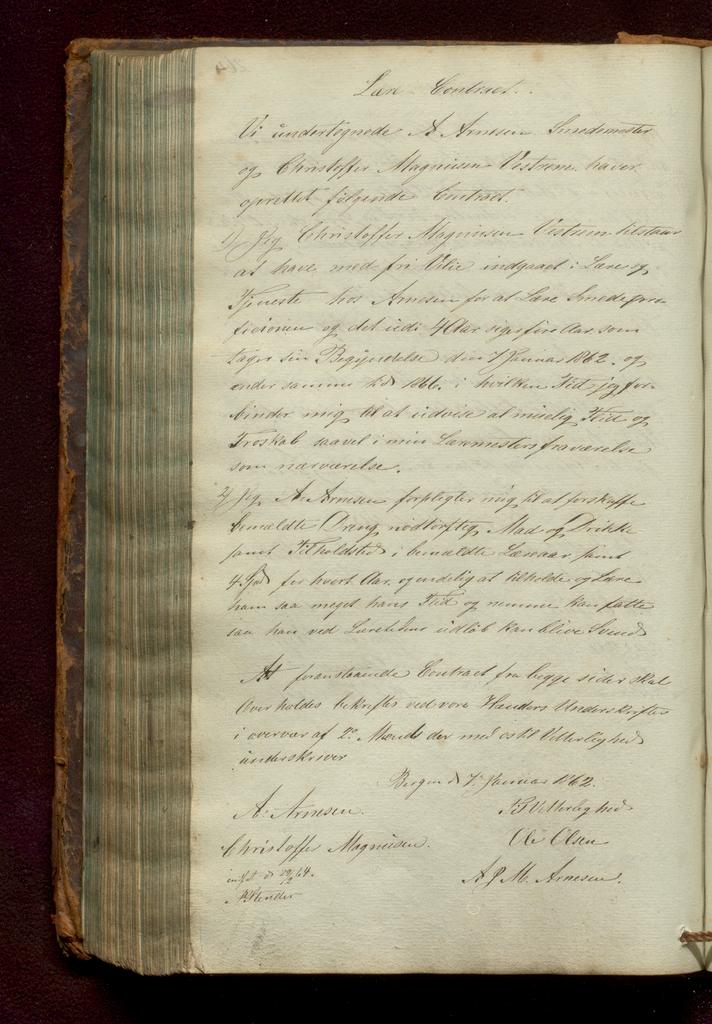 Lære Contract.
Vi undertegnede A Arnesen Smedemester
og Christoffer Magnusen Vestrem haver
oprettet følgende Contract.
1) Jeg Christoffer Magnusen Vestrem tilstaar
at have med fri Vilie indgaaet i Lære og
Tjeneste hos Arnesen for at Lære Smedepro-
fesionen og det udi 4 Aar siger fire Aar som
tager sin Begyndelse den 7 Januar 1862. og
ender samme tid 1866. i hvilken Tid jeg for-
binder mig til at udvise al muelig Flid og
Troskab saavel i min Læremesters fraværelse
som nærværelse.
2) Jeg A. Arnesen forpligter mig til at forskaffe
bemældte Dreng nødtørftig Mad og Drikke
samt Tilholdsted i bemældte Læreaar samt
4 Spd for hvert Aar. og endelig at tilholde og Lære
ham saa meget hans Flid og nemme kan fatte
saa han ved Læretidens udløb kan blive Svend
At foranstaaende Contract fra begge sider skal
Overholdes bekræftes ved vore Hænders Underskrifter
i overvær af 2de Mænd der med os til Vitterlighed
underskriver
Bergen d 7. Januar 1862.
A. Arnesen. Til Vitterlighed
Christoffer Magnusen. Ole Olsen
A P M. Arnesen.